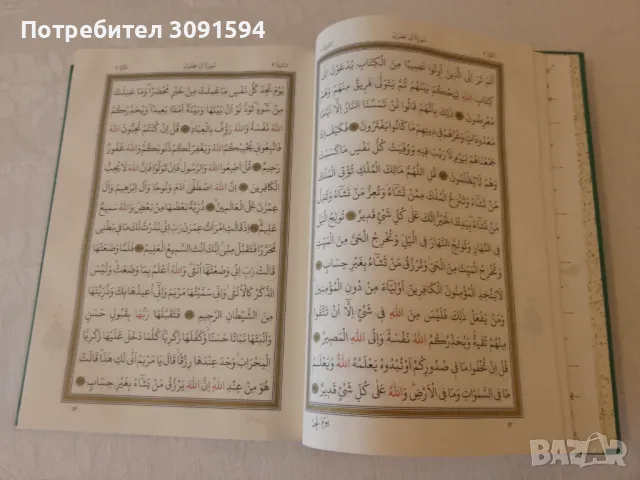 Потребител 3091594
سُورَةُ اٰلِ عِمْرٰنَ
اَلَمْ تَرَ اِلَى الَّذِينَ اُوتُوا نَصِيبًا مِنَ الْكِتَابِ يُدْعَوْنَ اِلٰى
كِتَابِ اللّٰهِ لِيَحْكُمَ بَيْنَهُمْ ثُمَّ يَتَوَلّٰى فَرِيقٌ مِنْهُمْ وَهُمْ
مُعْرِضُونَ ذٰلِكَ بِاَنَّهُمْ قَالُوا لَنْ تَمَسَّنَا النَّارُ اِلَّا اَيَّامًا
مَعْدُودَاتٍ وَغَرَّهُمْ فِي دِينِهِمْ مَا كَانُوا يَفْتَرُونَ فَكَيْفَ اِذَا
جَمَعْنَاهُمْ لِيَوْمٍ لَا رَيْبَ فِيهِ وَوُفِّيَتْ كُلُّ نَفْسٍ مَا كَسَبَتْ
وَهُمْ لَا يُظْلَمُونَ قُلِ اللّٰهُمَّ مَالِكَ الْمُلْكِ تُؤْتِي الْمُلْكَ
مَنْ تَشَاءُ وَتَنْزِعُ الْمُلْكَ مِمَّنْ تَشَاءُ وَتُعِزُّ مَنْ تَشَاءُ وَتُذِلُّ
مَنْ تَشَاءُ بِيَدِكَ الْخَيْرُ اِنَّكَ عَلٰى كُلِّ شَيْءٍ قَدِيرٌ تُولِجُ الَّيْلَ
فِي النَّهَارِ وَتُولِجُ النَّهَارَ فِي الَّيْلِ وَتُخْرِجُ الْحَيَّ مِنَ الْمَيِّتِ
وَتُخْرِجُ الْمَيِّتَ مِنَ الْحَيِّ وَتَرْزُقُ مَنْ تَشَاءُ بِغَيْرِ حِسَابٍ
لَا يَتَّخِذِ الْمُؤْمِنُونَ الْكَافِرِينَ اَوْلِيَاءَ مِنْ دُونِ الْمُؤْمِنِينَ
وَمَنْ يَفْعَلْ ذٰلِكَ فَلَيْسَ مِنَ اللّٰهِ فِي شَيْءٍ اِلَّا اَنْ تَتَّقُوا
مِنْهُمْ تُقٰيةً وَيُحَذِّرُكُمُ اللّٰهُ نَفْسَهُ وَاِلَى اللّٰهِ الْمَصِيرُ
قُلْ اِنْ تُخْفُوا مَا فِي صُدُورِكُمْ اَوْ تُبْدُوهُ يَعْلَمْهُ اللّٰهُ وَيَعْلَمُ
مَا فِي السَّمٰوَاتِ وَمَا فِي الْاَرْضِ وَاللّٰهُ عَلٰى كُلِّ شَيْءٍ قَدِيرٌ
يَوْمَ تَجِدُ
٥٢
سُورَةُ اٰلِ عِمْرٰنَ
يَوْمَ تَجِدُ كُلُّ نَفْسٍ مَا عَمِلَتْ مِنْ خَيْرٍ مُحْضَرًا وَمَا عَمِلَتْ
مِنْ سُوءٍ تَوَدُّ لَوْ اَنَّ بَيْنَهَا وَبَيْنَهُ اَمَدًا بَعِيدًا وَيُحَذِّرُكُمُ
اللّٰهُ نَفْسَهُ وَاللّٰهُ رَؤُفٌ بِالْعِبَادِ قُلْ اِنْ كُنْتُمْ تُحِبُّونَ اللّٰهَ
فَاتَّبِعُونِي يُحْبِبْكُمُ اللّٰهُ وَيَغْفِرْ لَكُمْ ذُنُوبَكُمْ وَاللّٰهُ غَفُورٌ
رَحِيمٌ قُلْ اَطِيعُوا اللّٰهَ وَالرَّسُولَ فَاِنْ تَوَلَّوْا فَاِنَّ اللّٰهَ لَا يُحِبُّ
الْكَافِرِينَ اِنَّ اللّٰهَ اصْطَفٰى اٰدَمَ وَنُوحًا وَاٰلَ اِبْرٰهِيمَ وَاٰلَ
عِمْرٰنَ عَلَى الْعَالَمِينَ ذُرِّيَّةً بَعْضُهَا مِنْ بَعْضٍ وَاللّٰهُ سَمِيعٌ
عَلِيمٌ اِذْ قَالَتِ امْرَاَتُ عِمْرٰنَ رَبِّ اِنِّي نَذَرْتُ لَكَ مَا فِي بَطْنِي
مُحَرَّرًا فَتَقَبَّلْ مِنِّي اِنَّكَ اَنْتَ السَّمِيعُ الْعَلِيمُ فَلَمَّا وَضَعَتْهَا
قَالَتْ رَبِّ اِنِّي وَضَعْتُهَا اُنْثٰى وَاللّٰهُ اَعْلَمُ بِمَا وَضَعَتْ وَلَيْسَ
الذَّكَرُ كَالْاُنْثٰى وَاِنِّي سَمَّيْتُهَا مَرْيَمَ وَاِنِّي اُعِيذُهَا بِكَ وَذُرِّيَّتَهَا
مِنَ الشَّيْطَانِ الرَّجِيمِ فَتَقَبَّلَهَا رَبُّهَا بِقَبُولٍ حَسَنٍ
وَاَنْبَتَهَا نَبَاتًا حَسَنًا وَكَفَّلَهَا زَكَرِيَّا كُلَّمَا دَخَلَ عَلَيْهَا زَكَرِيَّا
الْمِحْرَابَ وَجَدَ عِنْدَهَا رِزْقًا قَالَ يَا مَرْيَمُ اَنّٰى لَكِ هٰذَا قَالَتْ
هُوَ مِنْ عِنْدِ اللّٰهِ اِنَّ اللّٰهَ يَرْزُقُ مَنْ يَشَاءُ بِغَيْرِ حِسَابٍ
٥٣
BAZAR
bg